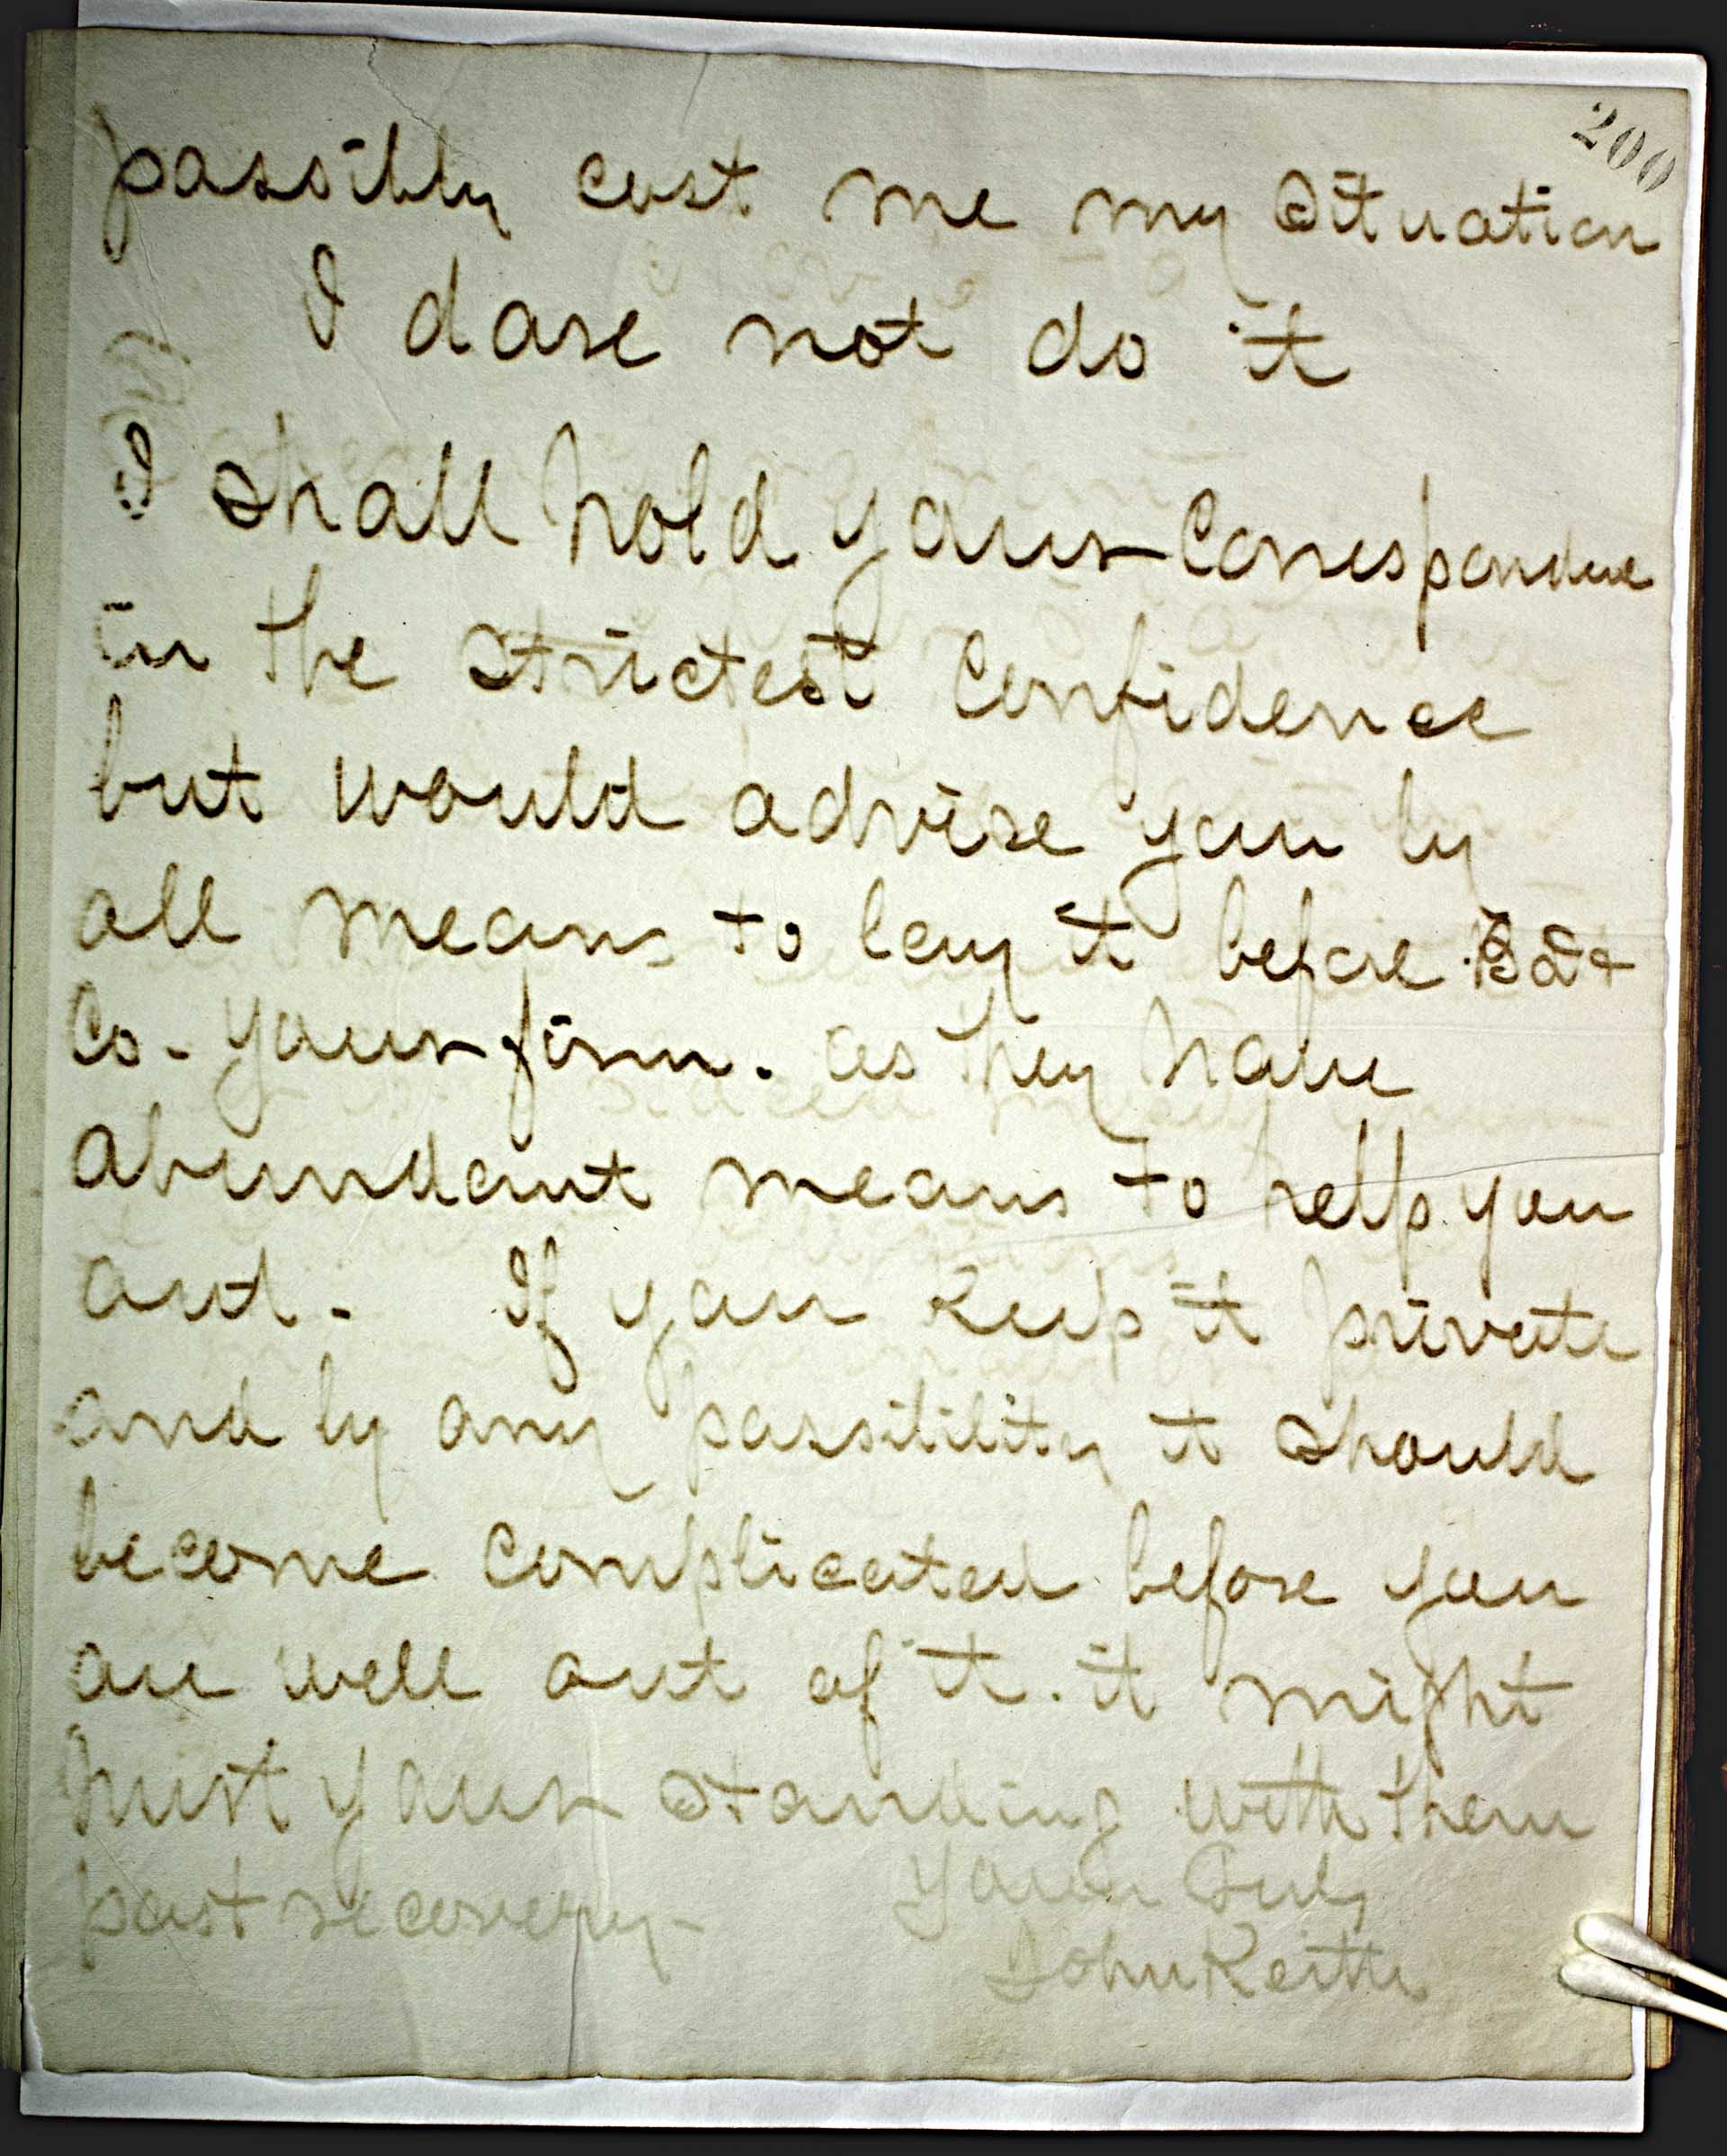 200
possibly cost me my Situation
I dare not do it
I shall hold your Correspondence
in the strictest Confidence
but would advise you by
all means to lay it before
Co. your firm. as they have
abundant means to help you
out. If you Keep it private
and by any possibility it should
become Complicated before you
are well out of it. it might
hurt your standing with them
past recovery Yours Truly
John Keith